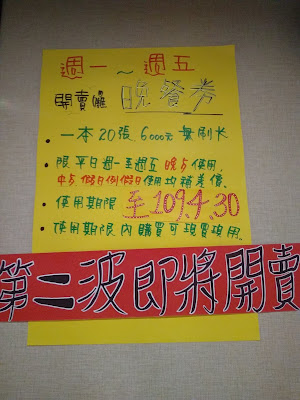 週一～週五
開賣囉 晚餐券
• 一本20張, 6000元 無刷卡
• 限平日週一至週五晚使用,
中, 假日例假日使用均補差價.
• 使用期限 至109.4.30
• 使用期限內購買可現買現用.
第二波即將開賣